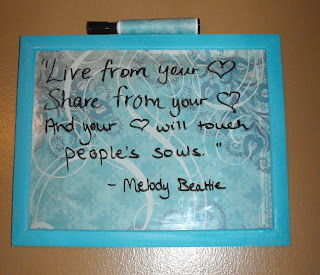 "Live from your ♡
Share from your ♡
And your ♡ will touch
people's souls."
- Melody Beattie